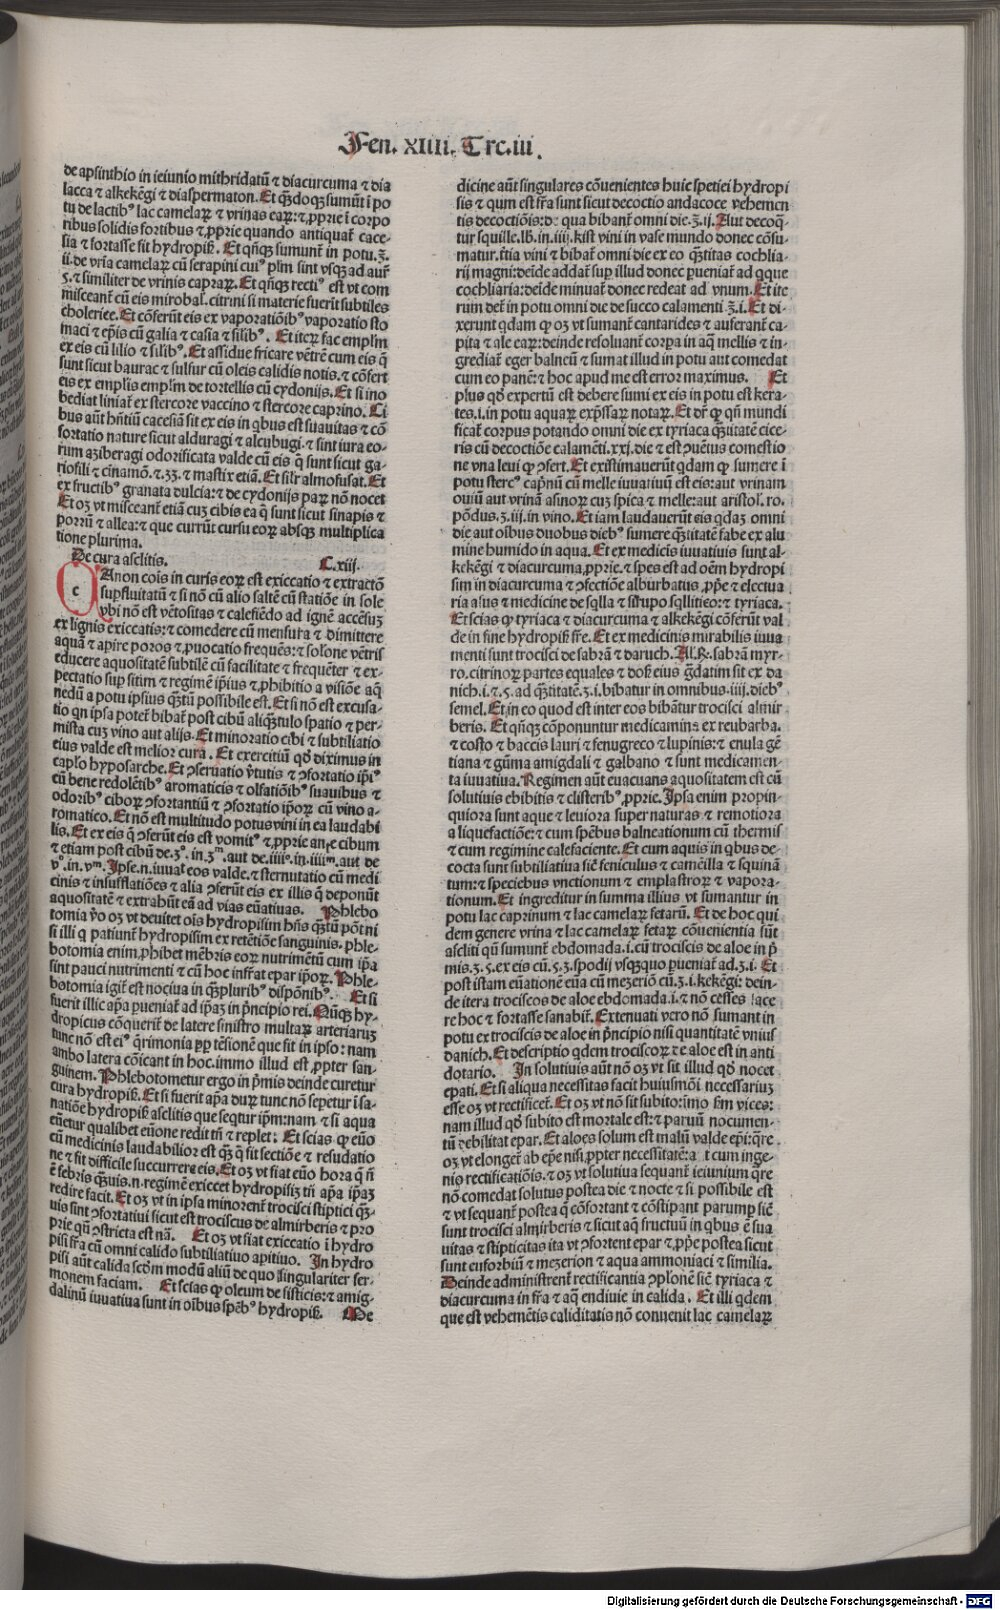 Fen. XIIII. Trc. iii.
de apsinthio in ieiunio mithridatū ⁊ diacurcuma ⁊ dia
lacca ⁊ alkekēgi ⁊ diaspermaton. Et qn̄doqꝫ sumūt ī po
tu de lactibꝰ lac camelaꝝ ⁊ vrinas eaꝝ: ⁊ ꝓprie ī corpo
ribus solidis fortibus ⁊ ꝓprie quando antiquat̄ cace⸗
sia ⁊ fortasse fit hydropiſ. Et qn̄qꝫ sumunt in potu.ʒ.
ii. de vria camelaꝝ cū serapini cuiꝰ plm̄ sint vsqꝫ ad aur̄
5. ⁊ similiter de vrinis capraꝝ. Et qn̄qꝫ rectiꝰ est vt com
misceant̄ cū eis mirobal. citrini si materie fuerit subtiles
cholerice. Et cōferūt eis ex vaporatiōibꝰ vaporatio sto
maci ⁊ ep̄tis cū galia ⁊ casia ⁊ silibꝰ. Et iteꝝ fac emplm̄
ex eis cū lilio ⁊ silibꝰ. Et assidue fricare vētrē cum eis q̄
sunt sicut baurac ⁊ sulfur cū oleis calidis notis. ⁊ cōfert
eis ex emplis emplm̄ de tortellis cū cydonijs. Et si ino
bediat liniat̄ ex stercore vaccino ⁊ stercore caprino. Ci
bus aūt hn̄tiū cacesiā sit ex eis in qbus est suauitas ⁊ cō
fortatio nature sicut alduragi ⁊ alcubugi. ⁊ sint iura eo⸗
rum aziberagi odorificata valde cū eis q̄ sunt sicut ga⸗
riofili ⁊ cinamō. ⁊.ʒʒ. ⁊ mastix etiā. Et silr̄ almosusat. Et
ex fructibꝰ granata dulcia: ⁊ de cydonijs paꝝ nō nocet
Et oꝫ vt misceant̄ etiā cuꝫ cibis ea q̄ sunt sicut sinapis ⁊
porrū ⁊ allea: ⁊ que currūt cursu eoꝝ absqꝫ multiplica
tione plurima.
De cura asclitis. C. xiij.
c Anon cois in curis eoꝝ est exiccatio ⁊ extractō
supfluitatū ⁊ si nō cū alio saltē cū statiōe in sole
vbi nō est vētositas ⁊ calefiēdo ad ignē accēsuꝫ
ex lignis exiccatis: ⁊ comedere cū mensura ⁊ dimittere
aquā ⁊ apire poros ⁊ ꝓuocatio frequēs: ⁊ solone vētris
educere aquositatē subtilē cū facilitate ⁊ frequēter ⁊ ex⸗
pectatio sup sitim ⁊ regimē ip̄ius ⁊ ꝓhibitio a visiōe aq̄
nedū a potu ipsius qn̄tū possibile est. Et si nō est excusa⸗
tio qn ipsa potet̄ bibat̄ post cibū aliqn̄tulo spatio ⁊ per⸗
mista cuꝫ vino aut alijs. Et minoratio cibi ⁊ subtiliatio
eius valde est melior cura. Et exercitiū qd̄ diximus in
caplo hyposarche. Et ꝯseruatio v̄tutis ⁊ ꝯfortatio ip̄iꝰ
cū bene redolētibꝰ aromaticis ⁊ olfatiōibꝰ suauibus ⁊
odoribꝰ ciboꝝ ꝯfortantiū ⁊ ꝯfortatio ip̄oꝝ cū vino a⸗
romatico. Et nō est multitudo potus vini in ea laudabi
lis. Et ex eis q̄ ꝯferūt eis est vomitꝰ ⁊ ꝓprie ante cibum
⁊ etiam post cibū de.3ᵒ. in.3ᵐ. aut de.iiiiᵒ. in.iiiiᵐ. aut de
vᵒ. in. vᵐ. Ipse.n. iuuat eos valde. ⁊ sternutatio cū medi
cinis ⁊ insufflatiōes ⁊ alia ꝯferūt eis ex illis q̄ deponūt
aquositatē ⁊ extrahūt eā ad vias euātiuas. Phlebo
tomia v̄o oꝫ vt deuitet oīs hydropisim hn̄s qn̄tū pōt ni
si illi q patiunt̄ hydropisim ex retētiōe sanguinis. phle⸗
botomia enim ꝓhibet mēbris eoꝝ nutrimētū cum ip̄a
sint pauci nutrimenti ⁊ cū hoc infr̄at epar ip̄oꝝ. Phle⸗
botomia igit̄ est nociua in qn̄pluribꝰ dispōnibꝰ. Et si
fuerit illic ap̄a pueniat̄ ad ip̄aꝫ in p̄ncipio rei. Nūqꝫ hy⸗
dropicus cōquerit̄ de latere sinistro multaꝝ arteriaruꝫ
tunc nō est eiꝰ q̄rimonia ꝓp tēsionē que fit in ipso: nam
ambo latera cōicant in hoc. immo illud est ꝓpter san⸗
guinem. Phlebotometur ergo in p̄mis deinde curetur
cura hydropiſ. Et si fuerit ap̄a duꝝ tunc nō sepetur ī sa⸗
natiōe hydropiſ asclitis que seqtur ip̄m: nam ⁊ si aqua
euētur qualibet euōne redit tn̄ ⁊ replet. Et scias q̄ euō
cū medicinis laudabilior est qn̄ q̄ fit sectiōe ⁊ resudatio
ne ⁊ fit difficile succurrere eis. Et oꝫ vt fiat euō hora q̄ n̄
ē febris qn̄uis. n. regimē exiccet hydropisiꝫ tn̄ ap̄a ip̄aꝫ
redire facit. Et oꝫ vt in ipsa minorent̄ trocisci stiptici qn̄⸗
uis sint ꝯfortatiui sicut est trociscus de almirberis ⁊ pro
prie qn̄ ꝯstricta est nā. Et oꝫ vt fiat exiccatio ī hydro
pisi fr̄a cū omni calido subtiliatiuo apitiuo. In hydro
pisi aūt calida scd̄m modū aliū de quo singulariter ser⸗
monem faciam. Et scias q̄ oleum de fisticis: ⁊ amig⸗
dalinū iuuatiua sunt in oībus sp̄ebꝰ hydropiſ. Me
dicine aūt singulares cōuenientes huic spetiei hydropi
sis ⁊ qum est fr̄a sunt sicut decoctio andacoce vehemen
tis decoctiōis: de qua bibant̄ omni die.ʒ.ij. Aut decoq̄⸗
tur squille. lb. in. iiij. kist vini in vase mundo donec cōsu⸗
matur. t̄tia vini ⁊ bibat̄ omni die ex eo qn̄titas cochlia⸗
rij magni: deīde addat̄ sup illud donec pueniat̄ ad qque
cochliaria: deīde minuat̄ donec redeat ad vnum. Et ite
rum det̄ in potu omni die de succo calamenti.ʒ.i. Et di⸗
xerunt qdam q̄ oꝫ vt sumant̄ cantarides ⁊ auferant̄ ca⸗
pita ⁊ ale eaꝝ: deinde resoluant̄ corpa in aq̄ mellis ⁊ in⸗
grediat̄ eger balneū ⁊ sumat illud in potu aut comedat
cum eo panē: ⁊ hoc apud me est error maximus. Et
plꝰus qd̄ expertū est debere sumi ex eis in potu est kera⸗
tes. i. in potu aquaꝝ exp̄ssaꝝ notaꝝ. Et dr̄ q̄ qn̄ mundi
ficat̄ corpus potando omni die ex tyriaca qn̄titatē cice⸗
ris cū decoctiōe calamēti. xxj. die ⁊ est ꝯuētus comestio
ne vna leui q̄ ꝯfert. Et existimauerūt qdam q̄ sumere ī
potu stercꝰ capn̄ū cū melle iuuatiuū est eis: aut vrinam
ouiū aut vrinā asinoꝝ cuꝫ spica ⁊ melle: aut aristoł. ro.
pōdus.ʒ.iij. in vino. Et iam laudauerūt eis qdaꝫ omni
die aut oībus duobus diebꝰ sumere qn̄titatē fabe ex alu
mine humido in aqua. Et ex medicis iuuatiuis sunt al⸗
kekēgi ⁊ diacurcuma ꝓprie. ⁊ spes est ad oēm hydropi
sim in diacurcuma ⁊ ꝯfectiōe alburbatus ꝓp̄e ⁊ electua
ria asus ⁊ medicine de sqlla ⁊ sirupo sqllitico: ⁊ tyriaca.
Et scias q̄ tyriaca ⁊ diacurcuma ⁊ alkekēgi cōferūt val
de in fine hydropiſ fr̄e. Et ex medicinis mirabilis iuua
menti sunt trocisci de sabrā ⁊ daruch. Al.℞. sabrā myr⸗
ro. citrinoꝝ partes equales ⁊ dosꝭ eius gdatim sit ex da
nich. i. ⁊.5. ad qn̄titatē.ʒ.i. bibatur in omnibus. iiij. diebꝰ
semel. Et in eo quod est inter eos bibātur trocisci almir
beris. Et qn̄qꝫ cōponuntur medicamina ex reubarba.
⁊ costo ⁊ baccis lauri ⁊ fenugreco ⁊ lupinis: ⁊ enula gē
tiana ⁊ gūma amigdali ⁊ galbano ⁊ sunt medicamen⸗
ta iuuatiua. Regimen aūt euacuans aquositatem est cū
solutiuis ebibitis ⁊ clisteribꝰ ꝓprie. Ipsa enim propin⸗
quiora sunt aque ⁊ leuiora super naturas ⁊ remotiora
a liquefactiōe: ⁊ cum spēbus balneationum cū thermis
⁊ cum regimine calefaciente. Et cum aquis in qbus de⸗
cocta sunt subtiliatiua sic̄ feniculus ⁊ cameilla ⁊ squinā
tum: ⁊ speciebus vnctionum ⁊ emplastroꝝ ⁊ vapora⸗
tionum. Et ingreditur in summa illius vt sumantur in
potu lac caprinum ⁊ lac camelaꝝ fetarū. Et de hoc qui
dem genere vrina ⁊ lac camelaꝝ fetaꝝ cōuenientia sūt
ascliti qn̄ sumunt̄ ebdomada. i. cū trociscis de aloe in p̄
mis.ʒ.5. ex eis cū.5.ʒ spodij vsqꝫquo pueniat̄ ad.ʒ.i. Et
post istam euationē euā cū mezeriō cū.ʒ.i. kekēgi: dein⸗
de itera trociscos de aloe ebdomada. i. ⁊ nō cesses face
re hoc ⁊ fortasse sanabit̄. Extenuati vero nō sumant in
potu ex trociscis de aloe in p̄ncipio nisi quantitatē vnius
danich. Et descriptio qdem trociscoꝝ de aloe est in anti
dotario. In solutiuis aūt nō oꝫ vt sit illud qd̄ nocet
epati. Et si aliqua necessitas facit huiusmōi necessariuꝫ
esse oꝫ vt rectificet̄. Et oꝫ vt nō fit subito: īmo fm̄ vices:
nam illud qd̄ subito est mortale est: ⁊ paruū nocumen⸗
tū debilitat epar. Et aloes solum est malū valde ep̄i: q̄re
oꝫ vt elonget̄ ab ep̄e nisi ꝓpter necessitatē: a t cum inge⸗
nijs rectificatiōis. ⁊ oꝫ vt solutiua sequant̄ ieiunium q̄re
nō comedat solutus postea die ⁊ nocte ⁊ si possibile est
⁊ vt sequant̄ postea q̄ cōfortant ⁊ cōstipant parump̄ sic̄
sunt trocisci almirberis ⁊ sicut aq̄ fructuū in qbus ē sua
uitas ⁊ stipticitas ita vt ꝯfortent epar ⁊ ꝓp̄e postea sicut
sunt euforbiū ⁊ mezerion ⁊ aqua ammoniaci ⁊ similia.
Deinde administrent̄ rectificantia ꝯplōnē sic̄ tyriaca ⁊
diacurcuma in fr̄a ⁊ aq̄ endiuie in calida. Et illi qdem
que est vehemētis caliditatis nō conuenit lac camelaꝝ
Digitalisierung gefördert durch die Deutsche Forschungsgemeinschaft - DFG